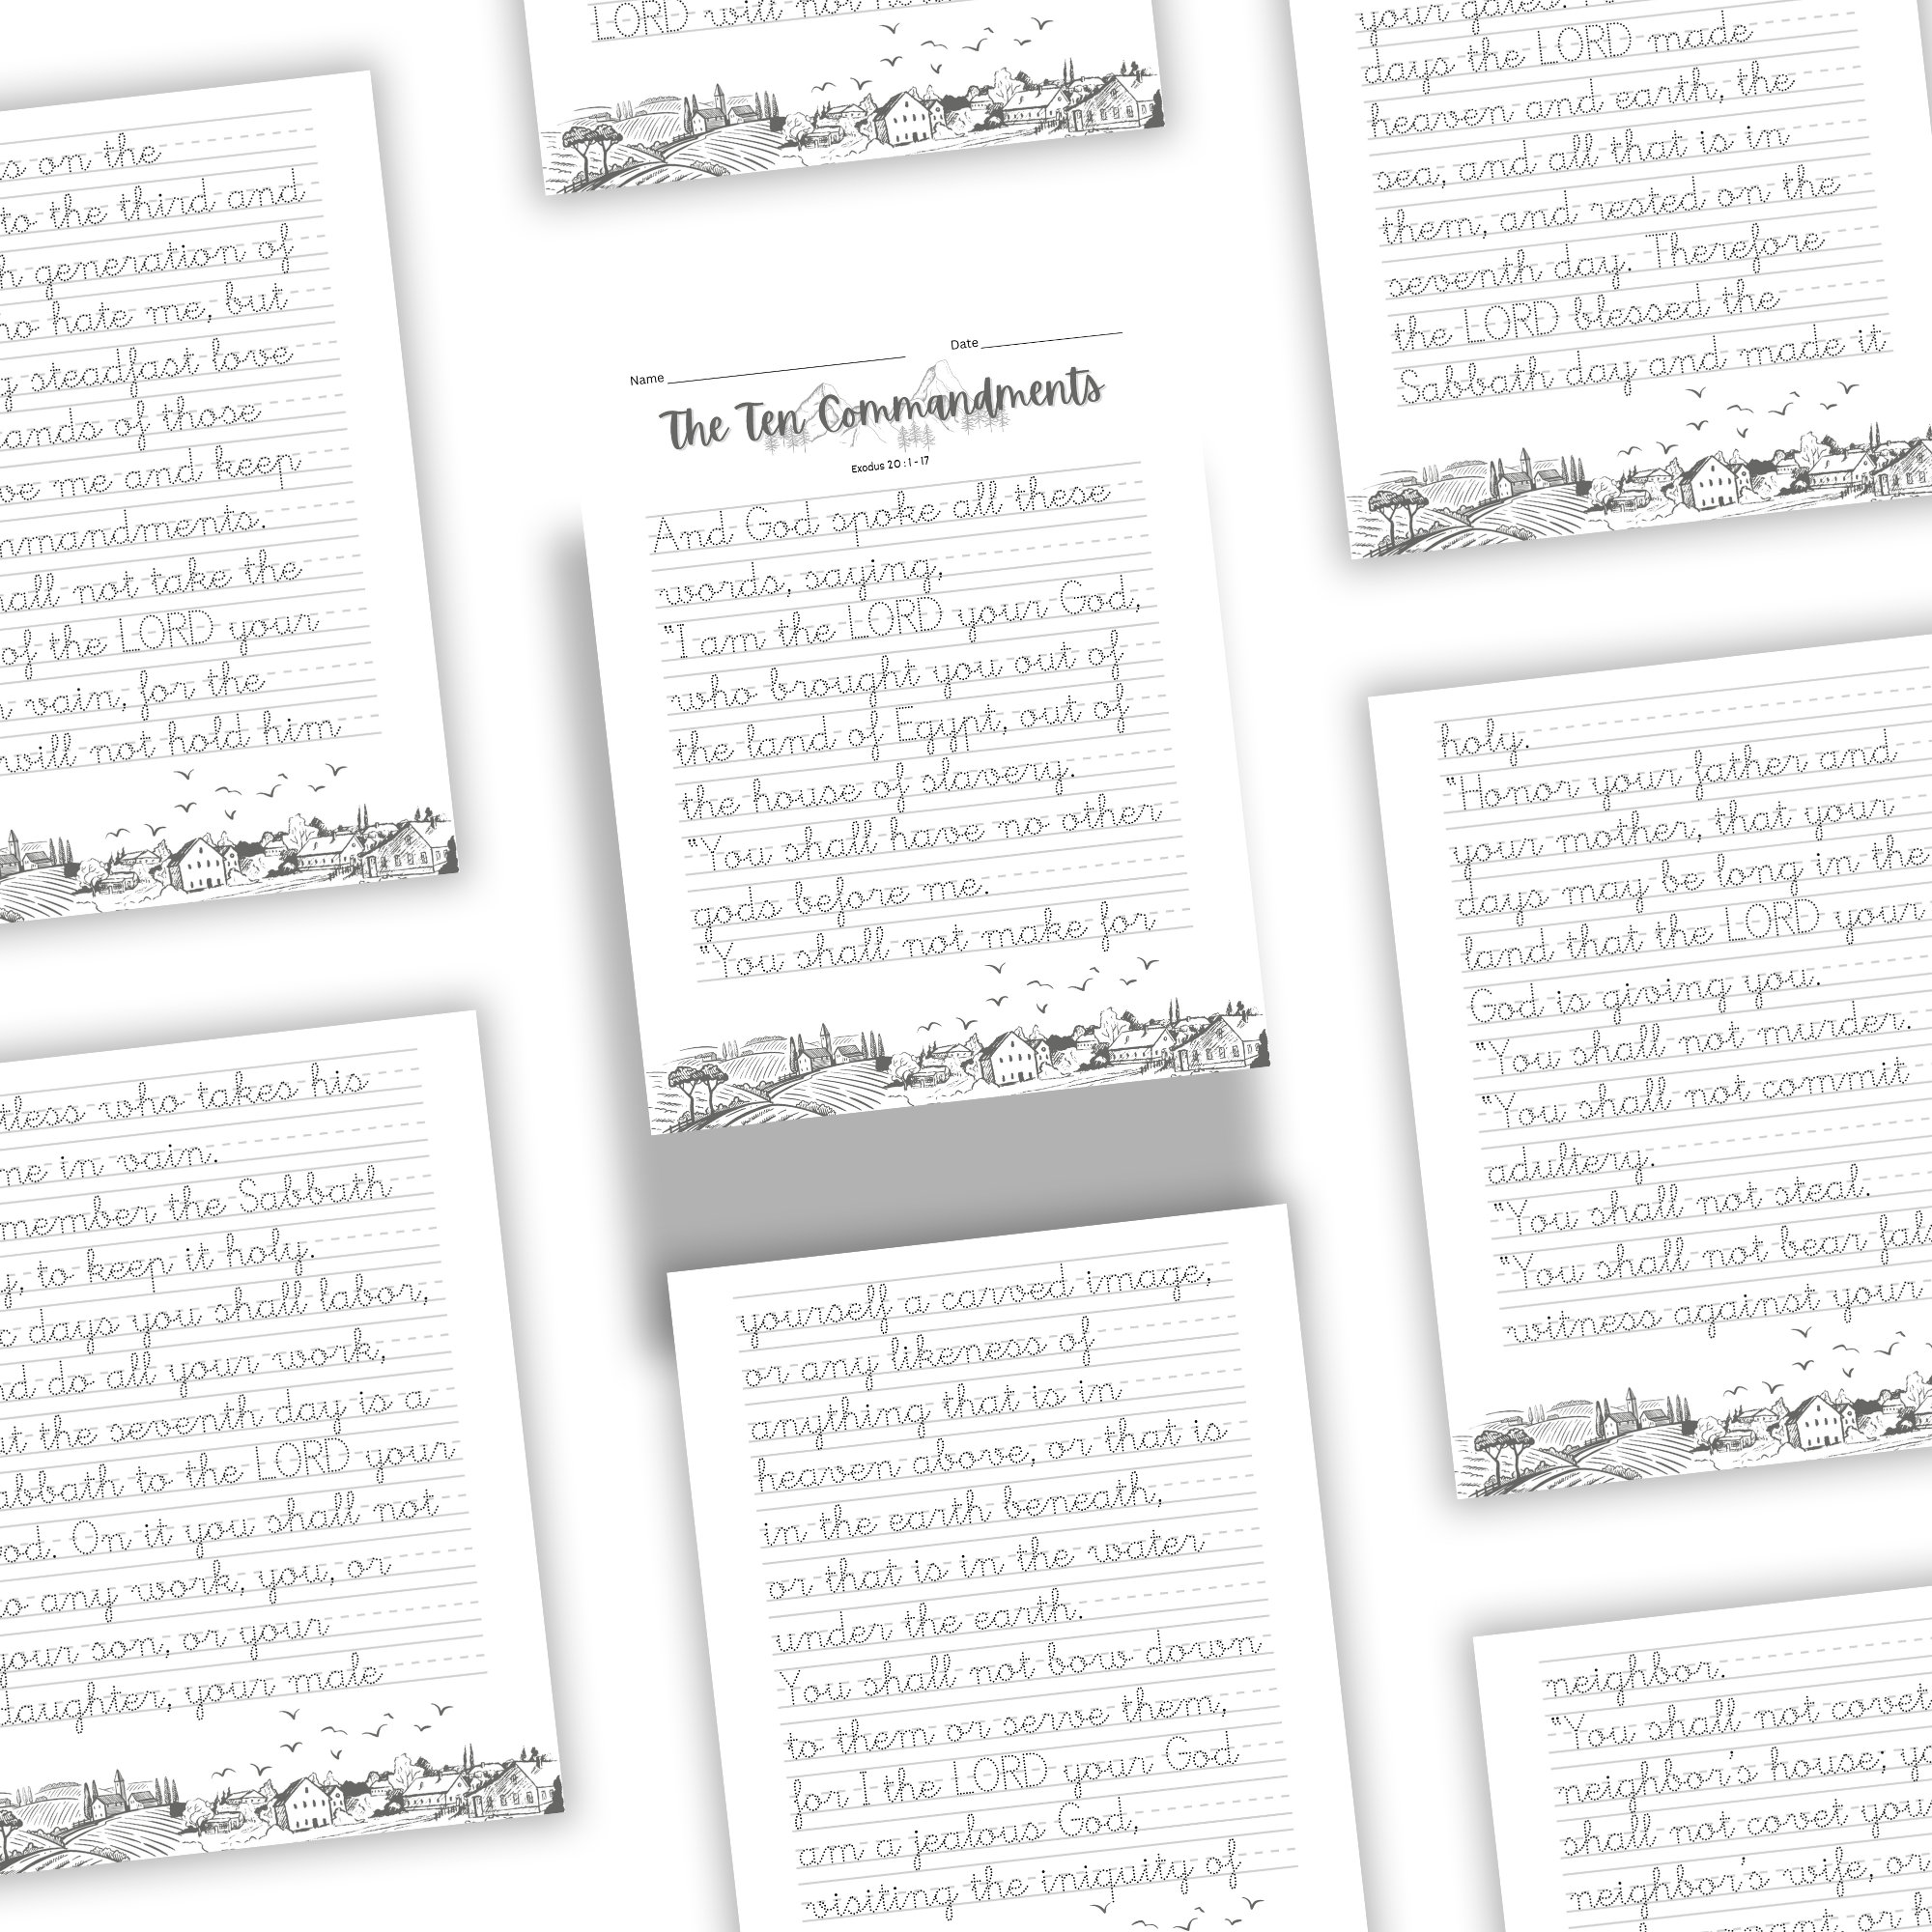 LORD will not
s on the
to the third and
generation of
hate me, but
steadfast love
of those
me and keep
mmandments.
shall not take the
of the LORD your
vain, for the
will not hold him
tless who takes his
me in vain.
member the Sabbath
, to keep it holy.
days you shall labor,
nd do all your work,
ut the seventh day is a
abbath to the LORD your
od. On it you shall not
o any work, you, or
your son, or your
daughter, your male
Name
Date
The Ten Commandments
Exodus 20 : 1 - 17
And God spoke all these
words, saying,
"I am the LORD your God,
who brought you out of
the land of Egypt, out of
the house of slavery.
"You shall have no other
gods before me.
"You shall not make for
yourself a carved image,
or any likeness of
anything that is in
heaven above, or that is
in the earth beneath,
or that is in the water
under the earth.
You shall not bow down
to them or serve them,
for I the LORD your God
am a jealous God,
visiting the iniquity of
your gates.
days the LORD made
heaven and earth, the
sea, and all that is in
them, and rested on the
seventh day. Therefore
the LORD blessed the
Sabbath day and made it
holy.
"Honor your father and
your mother, that your
days may be long in the
land that the LORD your
God is giving you.
"You shall not murder.
"You shall not commit
adultery.
"You shall not steal.
"You shall not bear fal
witness against your
neighbor.
"You shall not covet
neighbor's house; y
shall not covet you
neighbor's wife, or